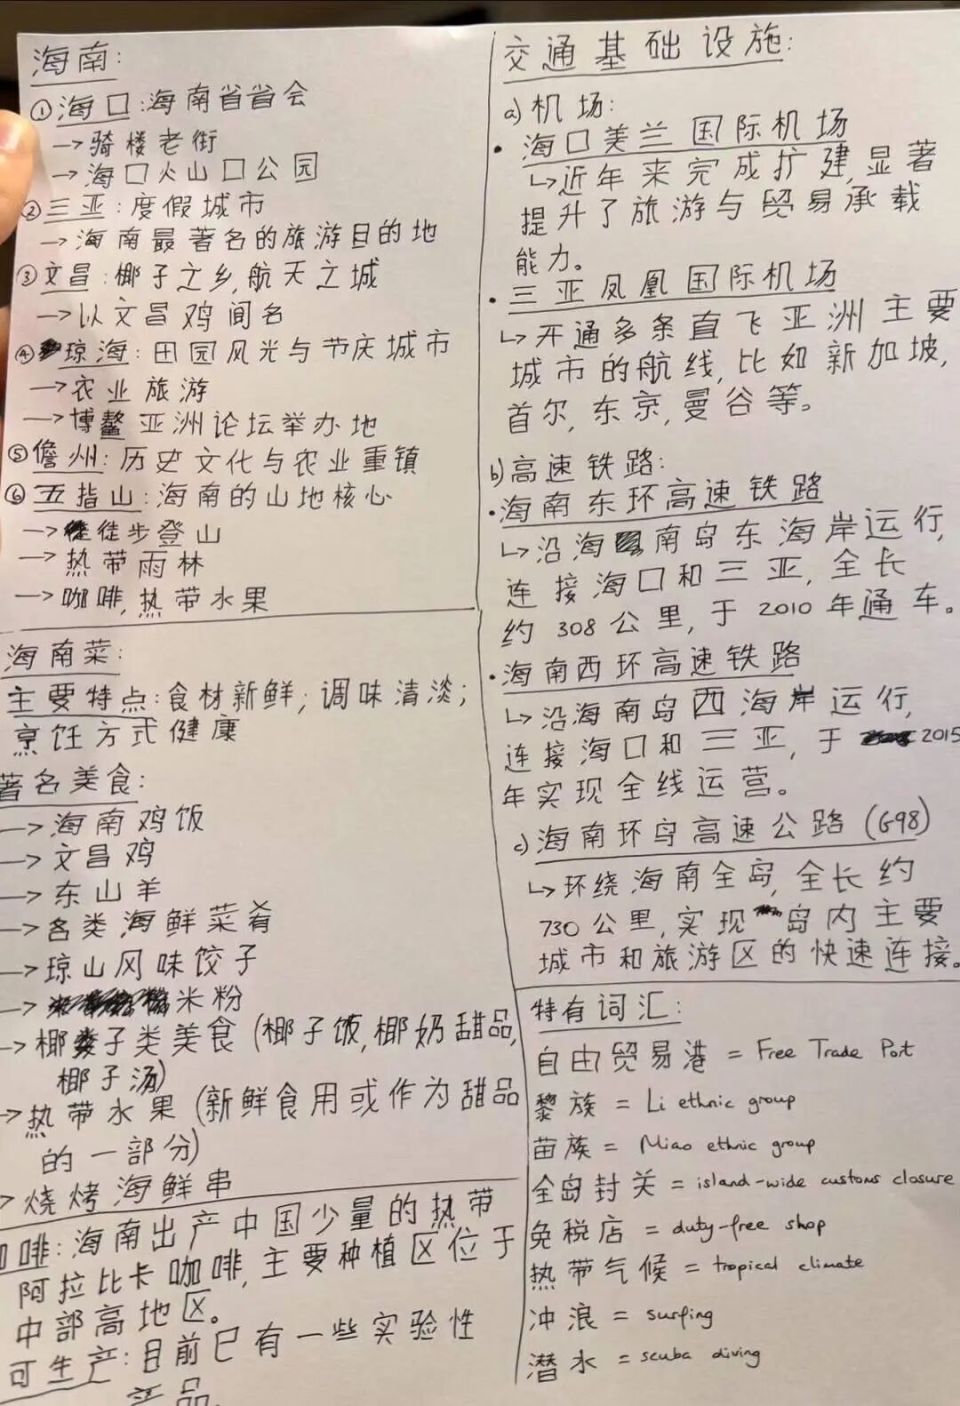 海南:
①海口:海南省省会
→骑楼老街
→海口火山口公园
②三亚:度假城市
→海南最著名的旅游目的地
③文昌:椰子之乡,航天之城
→以文昌鸡闻名
④琼海:田园风光与节庆城市
→农业旅游
→博鳌亚洲论坛举办地
⑤儋州:历史文化与农业重镇
⑥五指山:海南的山地核心
→徒步登山
→热带雨林
→咖啡,热带水果
海南菜:
主要特点:食材新鲜;调味清淡;
烹饪方式健康
著名美食:
→海南鸡饭
→文昌鸡
→东山羊
→各类海鲜菜肴
→琼山风味饺子
→米粉
→椰子类美食(椰子饭,椰奶甜品,
椰子汤)
→热带水果(新鲜食用或作为甜品
的一部分)
→烧烤海鲜串
咖啡:海南出产中国少量的热带
阿拉比卡咖啡,主要种植区位于
中部高地区。
可生产:目前已有一些实验性
产品
交通基础设施:
a)机场:
•海口美兰国际机场
↳近年来完成扩建,显著
提升了旅游与贸易承载
能力。
•三亚凤凰国际机场
↳开通多条直飞亚洲主要
城市的航线,比如新加坡,
首尔,东京,曼谷等。
b)高速铁路:
•海南东环高速铁路
↳沿海南岛东海岸运行,
连接海口和三亚,全长
约308公里,于2010年通车。
•海南西环高速铁路
↳沿海南岛西海岸运行,
连接海口和三亚,于2015
年实现全线运营。
c)海南环岛高速公路(G98)
↳环绕海南全岛,全长约
730公里,实现岛内主要
城市和旅游区的快速连接。
特有词汇:
自由贸易港 = Free Trade Port
黎族 = Li ethnic group
苗族 = Miao ethnic group
全岛封关 = island-wide customs closure
免税店 = duty-free shop
热带气候 = tropical climate
冲浪 = surfing
潜水 = scuba diving